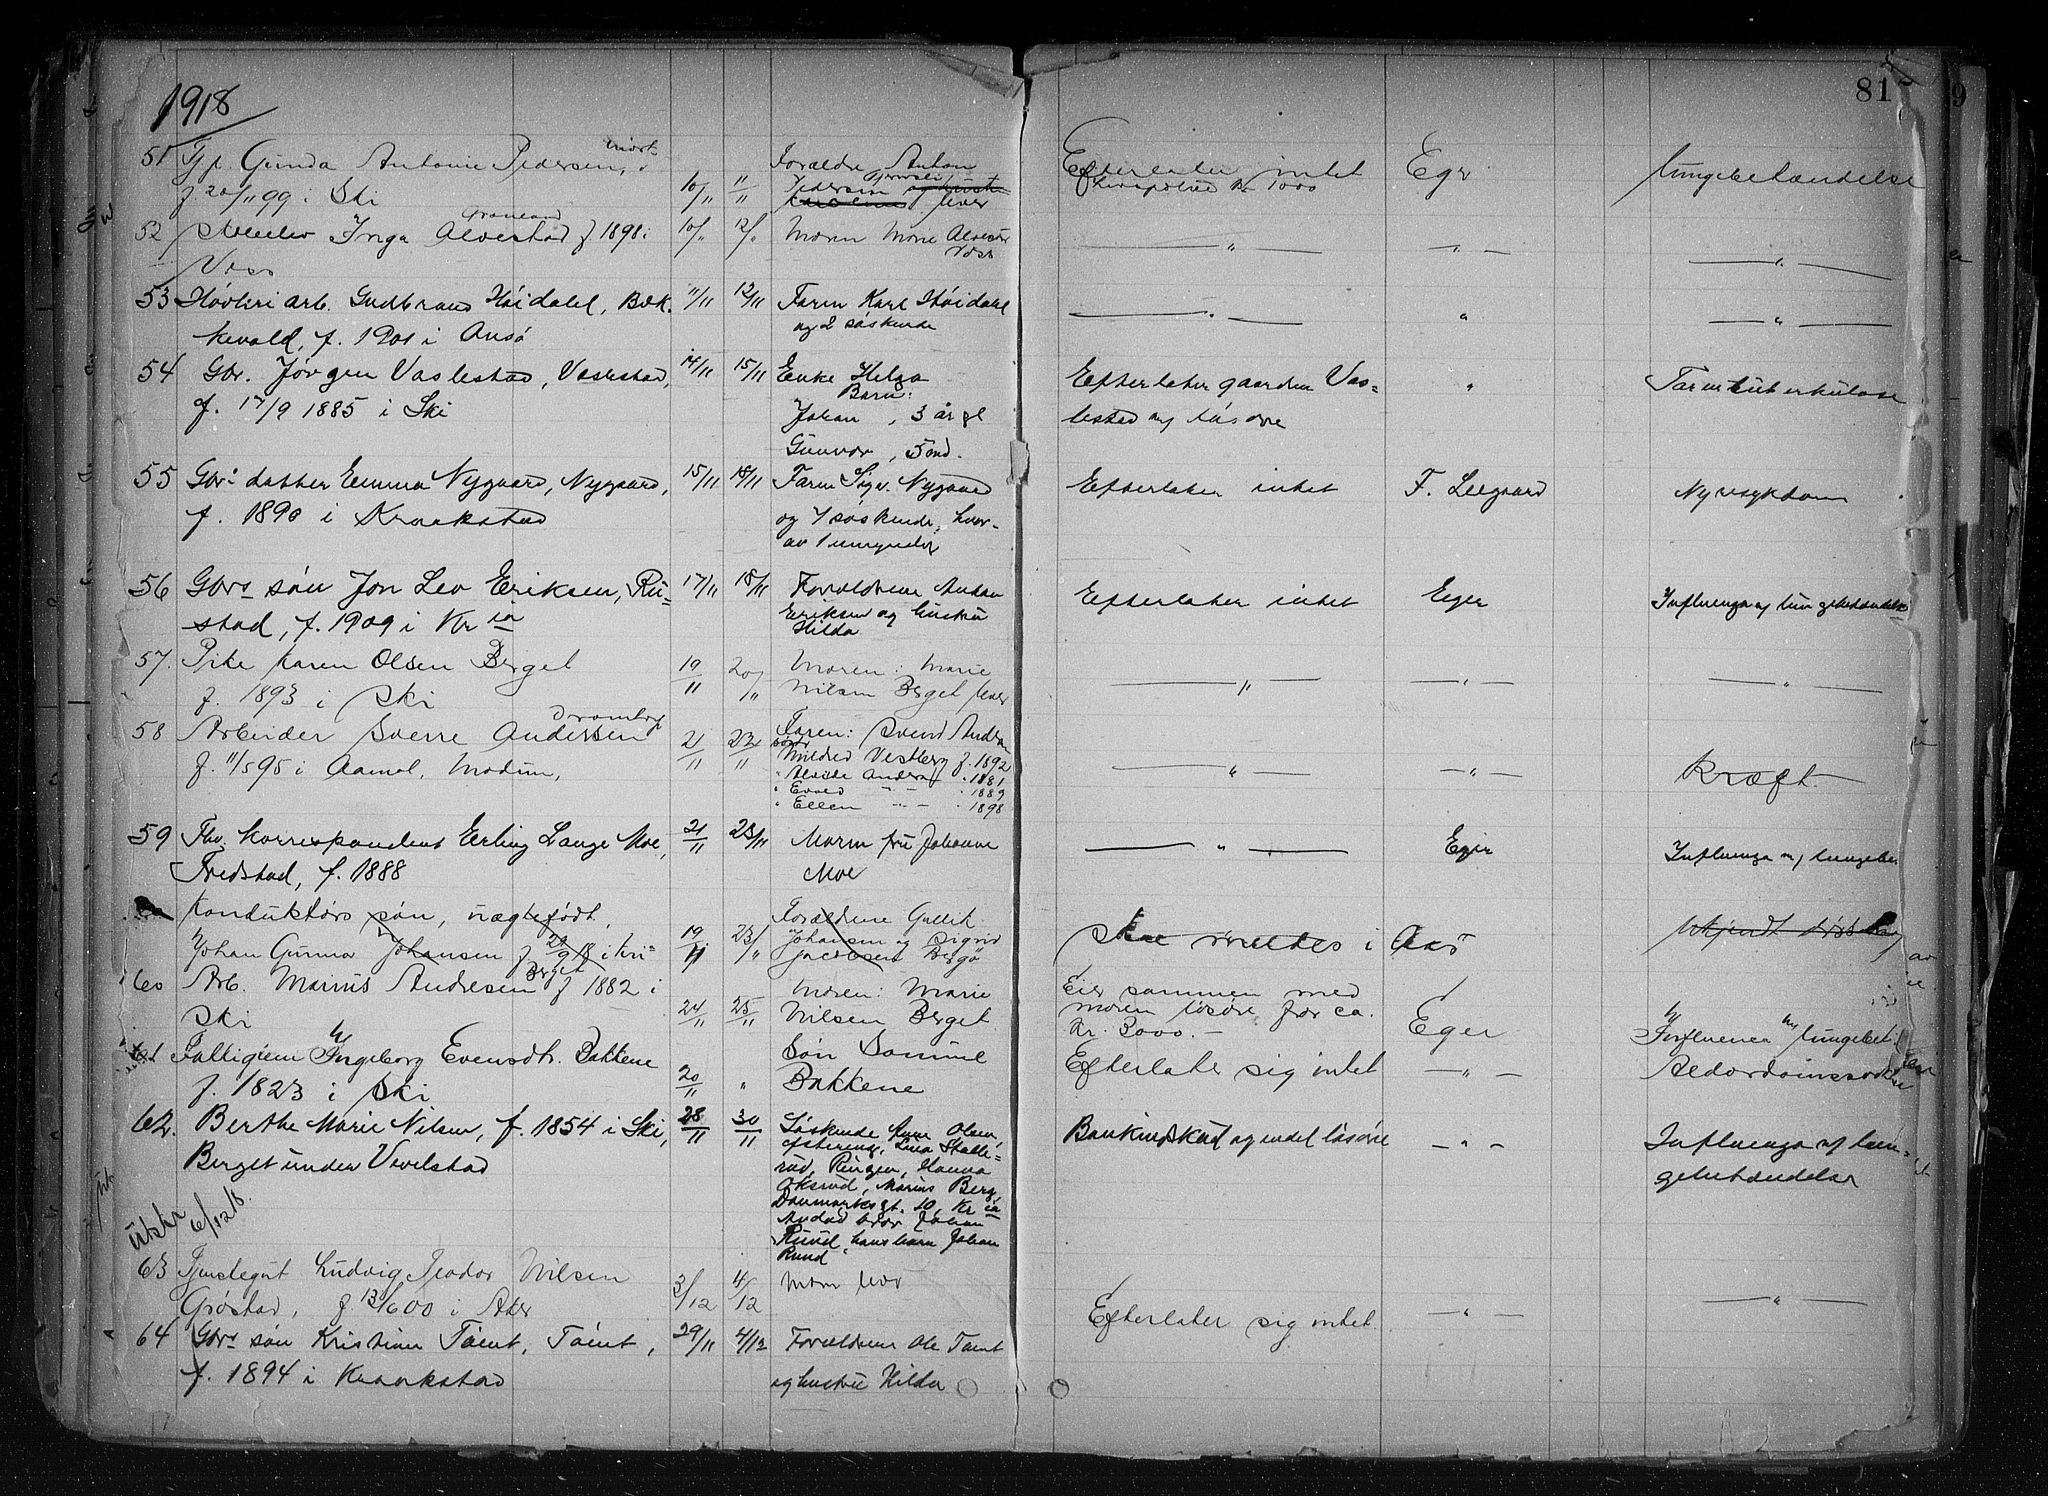 1918
81
9
51 Tjp. Gunda Antonie Pedersen,
f 20/11 99 i Ski
10/11 11/11
Forældre Anton
Pedersen
lever
Efterlater intet
Livspolise kr 1000
Eger
lungebetændelse
52 Inga Alvestad f. 1898 i
Voss
10/" 12/"
Moren Marie Alvestad
Voss
— " —
— " —
— " —
53 Høvleriarb. Gudbrand Høidalel, Bæk-
kevold, f. 1901 i
11/11 12/11
Faren Karl Høidalel
og 2 søskende
— " —
"
— " —
54 Gbr. Jørgen Vaslestad, Vaslestad,
f. 17/9 1885 i Ski
14/11 15/11
Enke Helga
Barn:
Johan, 3 år gl
Gunvor, 5 md.
Efterlater gaarden Vas-
lestad og løsøre
"
Tarmtuberkulose
55 Gbr: datter Emma Nygaard, Nygaard,
f. 1890 i Kraakstad
15/11 18/11
Faren Sigv. Nygaard
og 7 søskende, hvor-
av 1 umyndig
Efterlater intet
F. Leegaard
Nyresykdom
56 Gbrs søn Jon Leo Eriksen, Ru-
stad, f. 1909 i Kria
17/11 18/11
Forældrene Anton
Eriksen og hustru
Hilda
Efterlater intet
Eger
Influenza og lungebetændelse
57. Pike Karen Olsen Berget
f. 1893 i Ski
19/11 20/11
Moren: Marie
Nilsen Berget lever
— " —
— " —
— " —
58 Arbeider Sverre Andersen
f. 11/5 95 i Aamot, Modum,
21/11 22/11
Faren: Svend Anders
Mildred Vestberg f. 1892
" Alvilde Anders " 1881
" Evald " - " 1889
" Ellen " - " 1898
— " —
— " —
Kræft.
59 Fhv. korrespondent Erling Lange Moe,
Fredstad, f. 1888
21/11 23/11
Moren fru Johanne
Moe
— " —
Eger
Influenza og lungebet
Konduktørs søn, uægtefødt,
Johan Gunnar Johansen f 29/9 18 i Kri-
19/11 23/"
Forældrene Gullik
Johansen og Sigrid
Jacobsen Bergø
Skal meldes i Aas
Ukjendt
60 Arb. Marius Andresen Berget f 1882 i
Ski
24/11 25/11
Moren: Marie
Nilsen Berget
Eier sammen med
moren løsøre for ca.
Kr. 3000.-
Eger
Influenca og lungebet.
61 Fattiglem Ingeborg Evensdt. Bakkene
f. 1823 i Ski
20/11 "
Søn Samuel
Bakkene
Efterlater sig intet
— " —
Alderdomssvak
62. Berthe Marie Nilsen, f. 1854 i Ski,
Berget under Vevelstad
28/11 30/11
Søskende Anne Olsen,
Lina Stalle-
rud, Ringen, Hanna
Oksrud, Marius Berg,
Danmarksgt. 10, Kria
Avdød bror Johan
Ruud, hans barn Johan
Ruud
Bankindskud og endel løsøre
— " —
Influenza og lun-
gebetændelse
6/12 18.
63 Tjenstegut Ludvig Teodor Nilsen
Grøstad, f. 13/6 00 i Aker
3/12 4/12
Mor lever
Efterlater sig intet
— " —
— " —
64 Gbrs søn Kristian Tømt, Tømt,
f. 1894 i Kraakstad
29/11 4/12
Forældrene Ole Tømt
og hustru Hilda